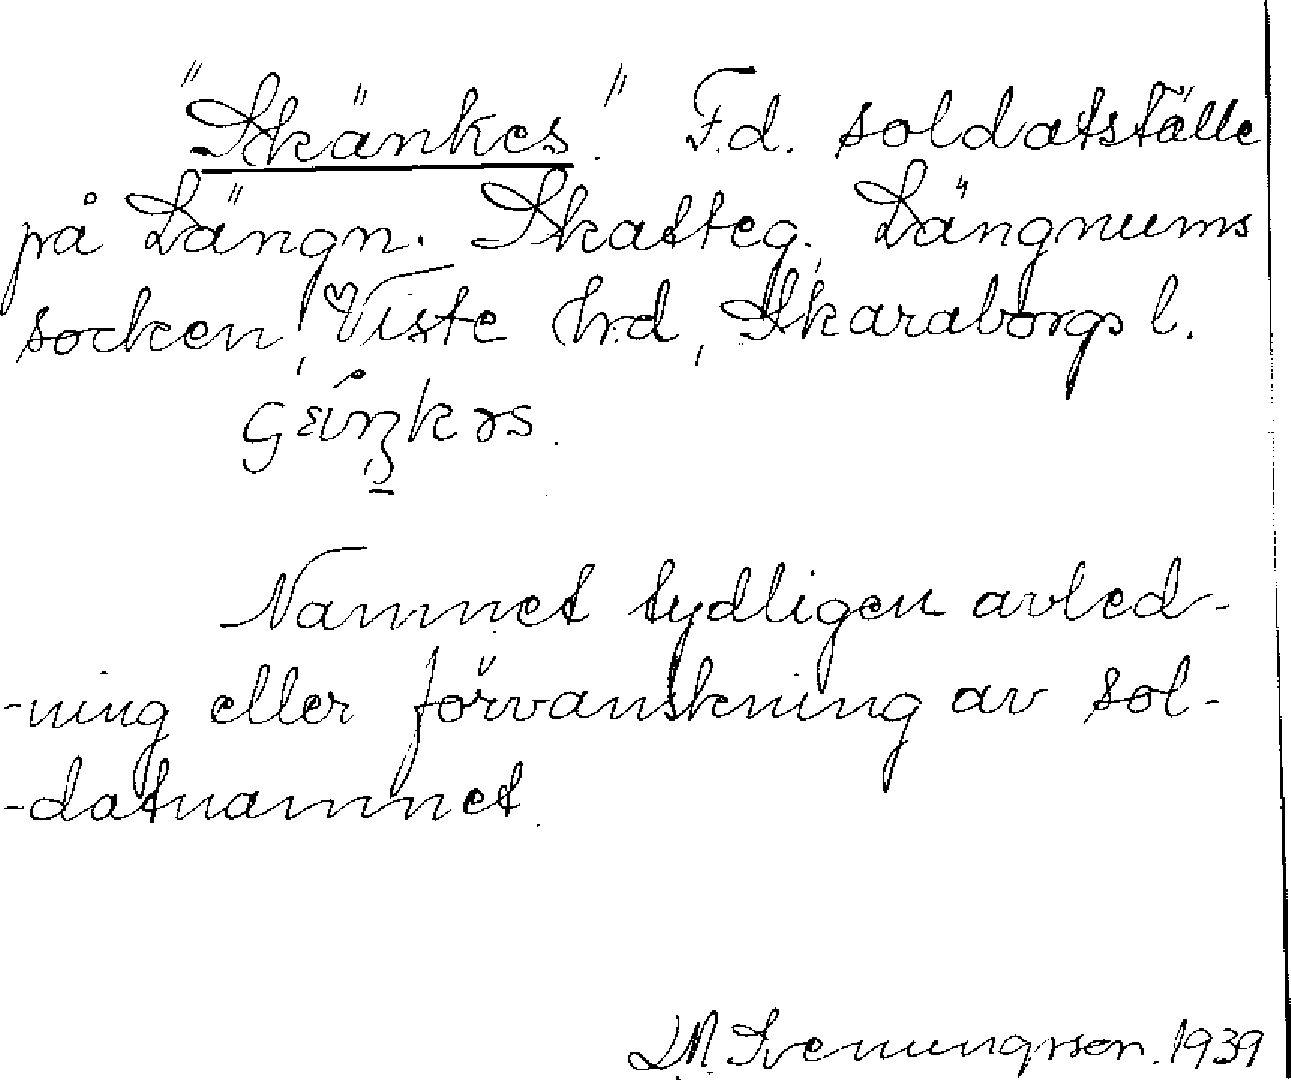 "Skänkes". F.d. soldatställe
på Längn. Skatteg., Längnums
socken, Viste hrd, Skaraborgs l.
Namnet tydligen avled-
-ning eller förvanskning av sol-
-datnamnet.
Svenungsson. 1939